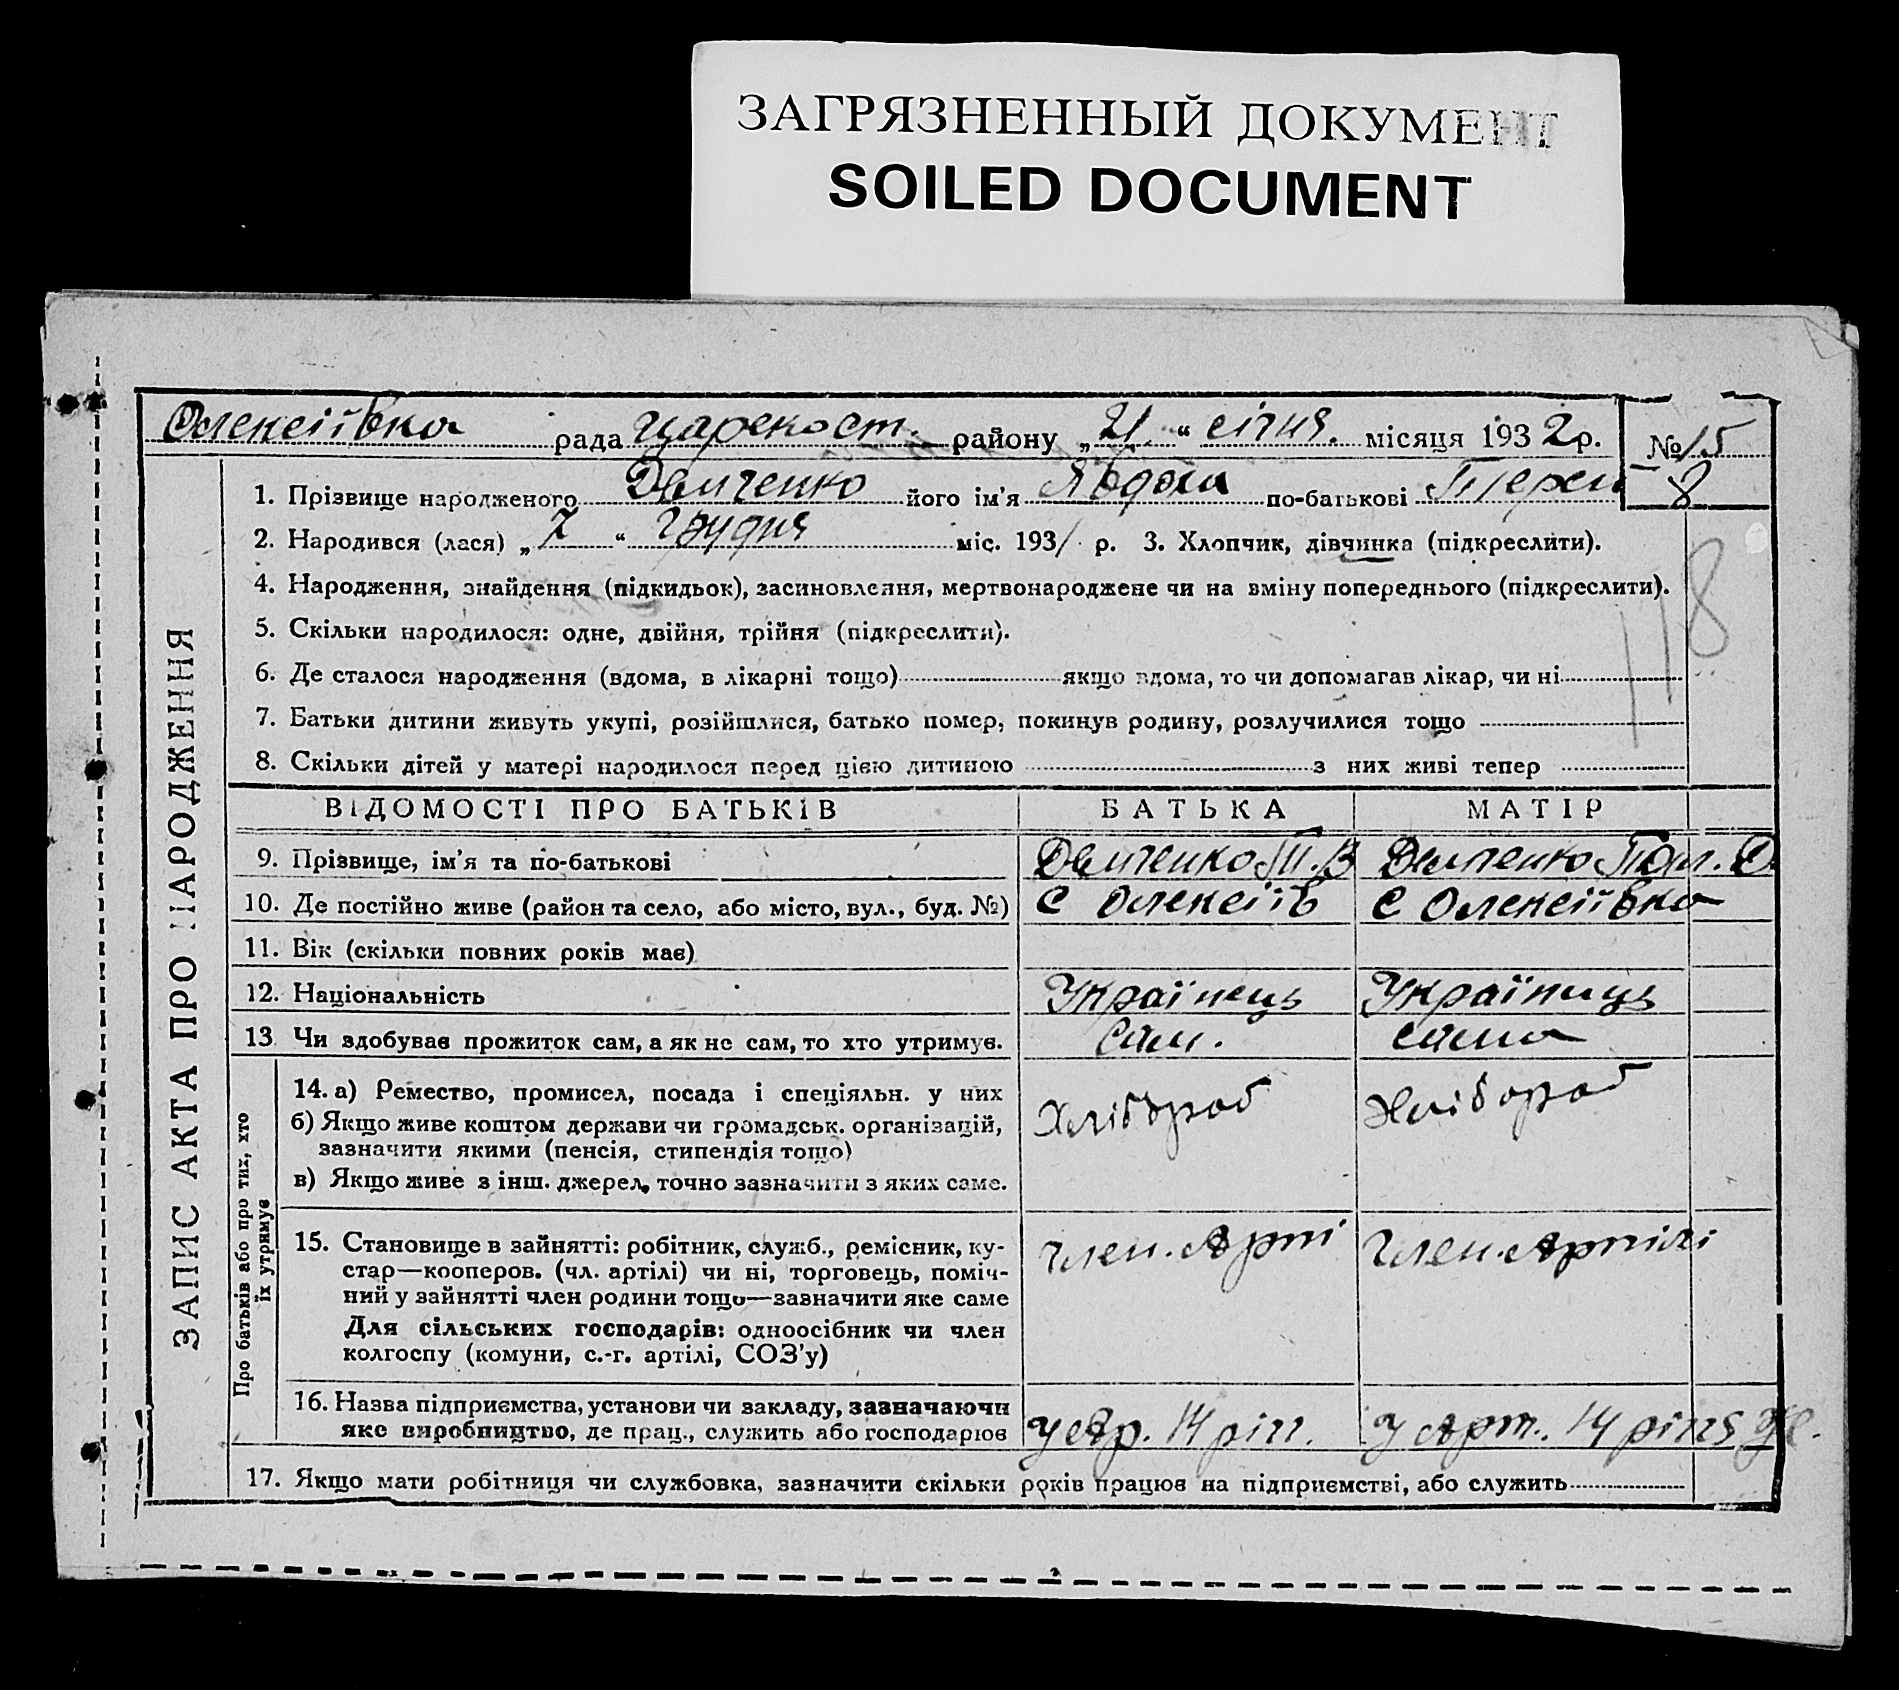 ЗАГРЯЗНЕННЫЙ ДОКУМЕНТ
SOILED DOCUMENT
Олексіївка рада Царекост. району „21“ січня. місяця 1932 р. № 15
8
1. Прізвище народженого Демченко його ім'я Явдоха по-батькові Терен
2. Народився (лася) „7“ грудня міс. 1931 р. 3. Хлопчик, дівчинка (підкреслити).
4. Народження, знайдення (підкидьок), засиновлення, мертвонароджене чи на вміну попереднього (підкреслити).
118
5. Скільки народилося: одне, двійня, трійня (підкреслити).
6. Де сталося народження (вдома, в лікарні тощо) якщо вдома, то чи допомагав лікар, чи ні
7. Батьки дитини живуть укупі, розійшлися, батько помер, покинув родину, розлучилися тощо
8. Скільки дітей у матері народилося перед цією дитиною з них живі тепер
ЗАПИС АКТА ПРО НАРОДЖЕННЯ
ВІДОМОСТІ ПРО БАТЬКІВ БАТЬКА МАТІР
9. Прізвище, ім'я та по-батькові Демченко Т. В Демченко О.
10. Де постійно живе (район та село, або місто, вул., буд. №) С Олексіїв С Олексіївка
11. Вік (скільки повних років має)
12. Національність Українець Українець
13 Чи здобував прожиток сам, а як не сам, то хто утримує. Сам. сама
Про батьків або про тих, хто
їх утримує
14. а) Ремество, промисел, посада і спеціяльн. у них Хлібороб Хлібороб
б) Якщо живе коштом держави чи громадськ. організацій,
зазначити якими (пенсія, стипендія тощо)
в) Якщо живе з інш. джерел, точно зазначити з яких саме.
15. Становище в зайнятті: робітник, служб., ремісник, ку- член. Арті член. Артілі
стар—кооперов. (чл. артілі) чи ні, торговець, поміч-
ний у зайнятті член родини тощо—зазначити яке саме
Для сільських господарів: одноосібник чи член
колгоспу (комуни, с.-г. артілі, СОЗ'у)
16. Назва підприємства, установи чи закладу, зазначаючи
яке виробництво, де прац., служить або господарює У Ар. 14 річ. У Арт. 14 річчя
17. Якщо мати робітниця чи службовка, зазначити скільки років працює на підприємстві, або служить